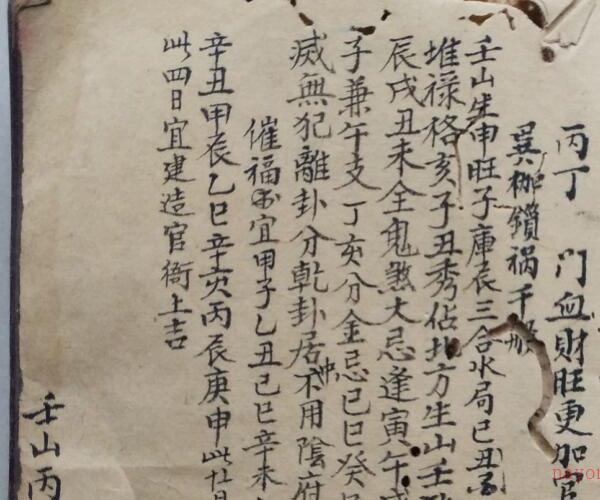 丙丁　門血財旺更加官
巽枷鎖禍千般
壬山生申旺子庫辰三合水局巳丑
堆禄格亥子丑秀佔北方生山壬
辰戌丑未全鬼煞大忌逢寅午戌
子兼午支丁亥分金忌己巳癸
滅無犯離卦分乾卦居冲不用陰府
催福 宜甲子乙丑己巳辛未
辛丑甲辰乙巳辛亥丙辰庚申此廿日
此四日宜建造官衙上吉
壬山丙